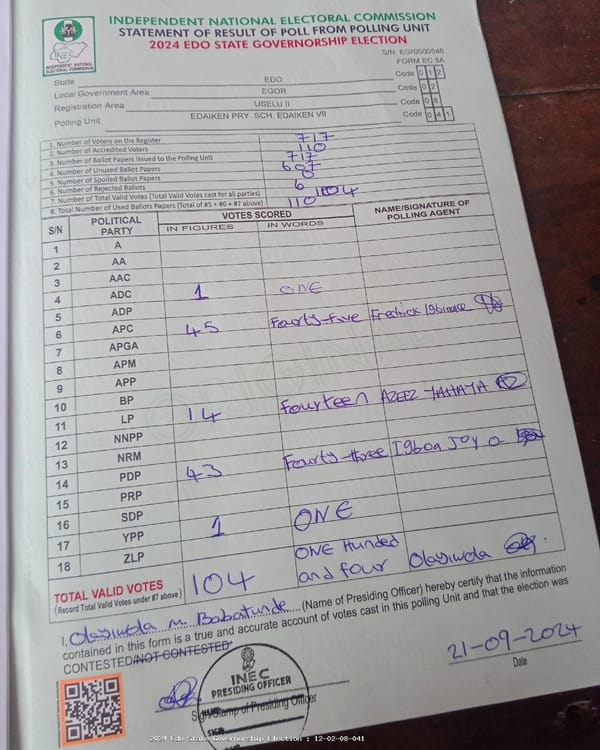 INDEPENDENT NATIONAL ELECTORAL COMMISSION
STATEMENT OF RESULT OF POLL FROM POLLING UNIT
2024 EDO STATE GOVERNORSHIP ELECTION
INEC
INDEPENDENT NATIONAL ELECTORAL COMMISSION
S/N: EG/0000546
FORM EC 8A
State EDO Code 0 1 2
Local Government Area EGOR Code 0 2
Registration Area USELU II Code 0 8
Polling Unit EDAIKEN PRY. SCH. EDAIKEN VII Code 0 4 1
1. Number of Voters on the Register 717
2. Number of Accredited Voters 110
3. Number of Ballot Papers Issued to the Polling Unit 717
4. Number of Unused Ballot Papers 607
5. Number of Spoiled Ballot Papers 0
6. Number of Rejected Ballots 6
7. Number of Total Valid Votes (Total Valid Votes cast for all parties) 104
8. Total Number of Used Ballots Papers (Total of #5 + #6 + #7 above) 110
S/N POLITICAL PARTY VOTES SCORED NAME/SIGNATURE OF POLLING AGENT
IN FIGURES IN WORDS
1 A
2 AA
3 AAC
4 ADC 1 ONE
5 ADP
6 APC 45 Fourty-five Fredrick
7 APGA
8 APM
9 APP
10 BP
11 LP 14 Fourteen AZEEZ YAHAYA
12 NNPP
13 NRM
14 PDP 43 Fourty-three Igboa Joy O
15 PRP
16 SDP
17 YPP 1 ONE
18 ZLP
TOTAL VALID VOTES 104 ONE Hunded and four Olayiwola
(Record Total Valid Votes under #7 above)
I, Olayiwola M. Babatunde (Name of Presiding Officer) hereby certify that the information
contained in this form is a true and accurate account of votes cast in this polling Unit and that the election was
CONTESTED/NOT CONTESTED
21-09-2024
Date
INEC
PRESIDING OFFICER
Sign/Stamp of Presiding Officer
2024 Edo State Governorship Election : 12-02-08-041